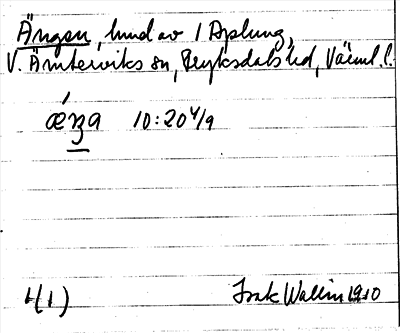 Ängen, hmd av 1 Aplung,
V. Ämterviks sn, Fryksdals hd, Värml. l.
10:20 4/9
4(1)
Isak Wallin 1910